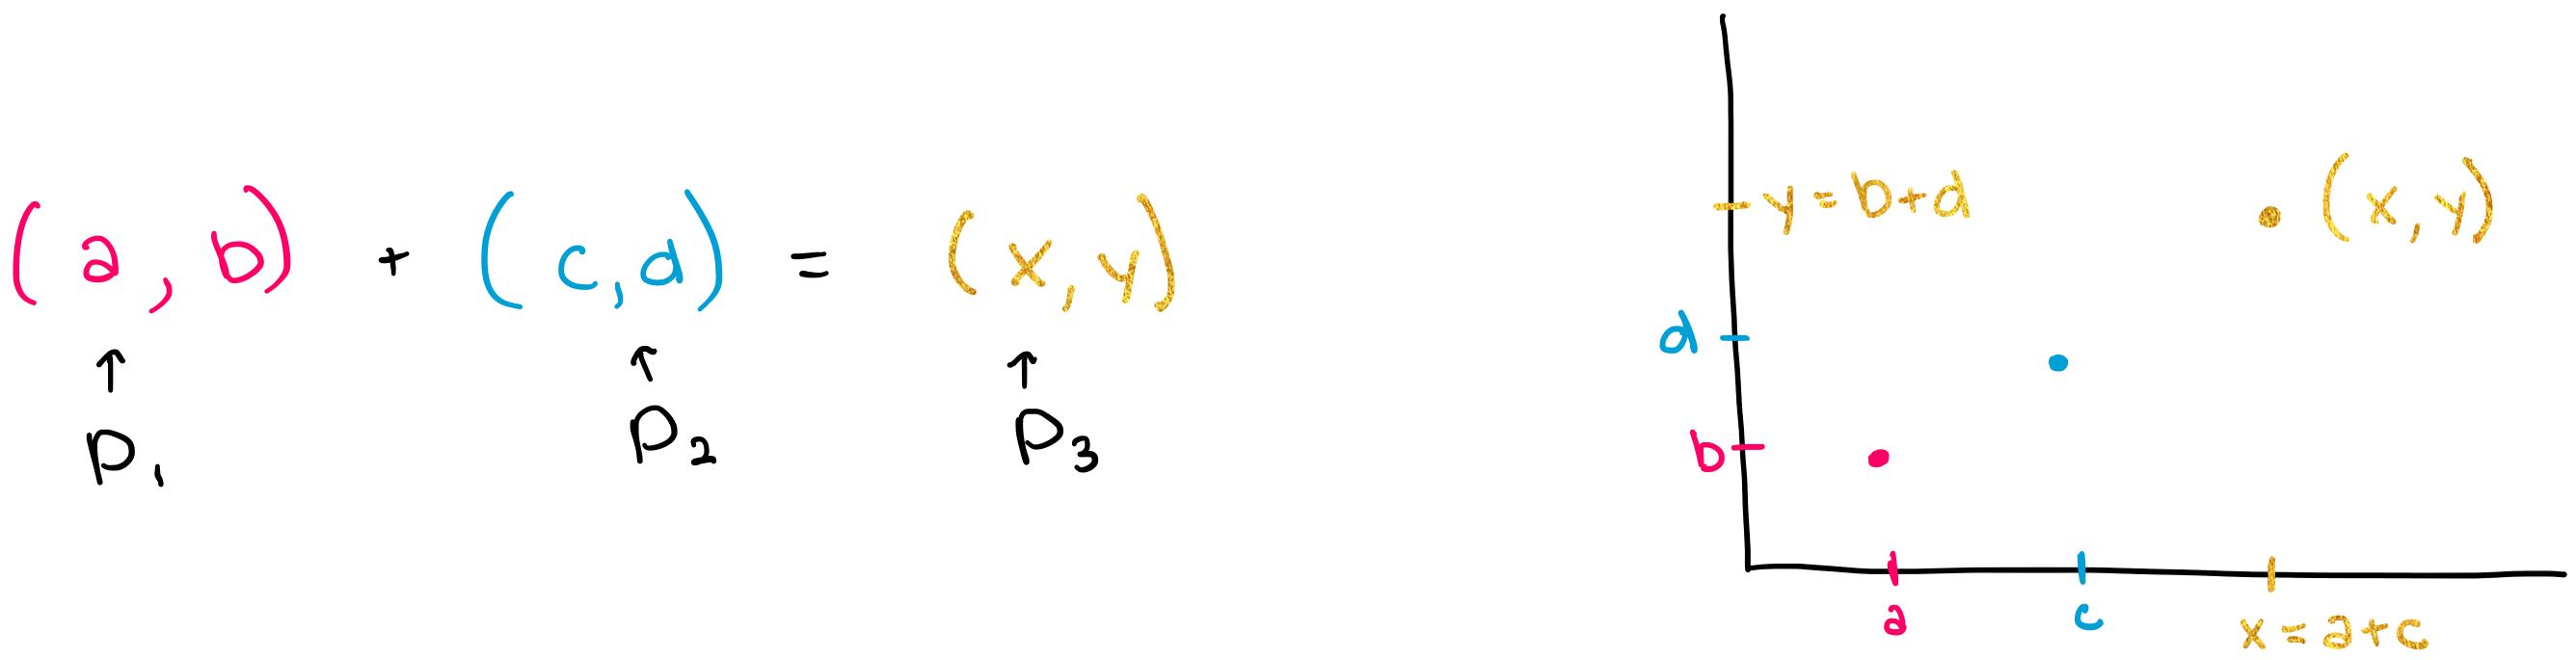 (a, b) + (c, d) = (x, y)
↑ ↑ ↑
P1 P2 P3
y = b+d
(x, y)
d
b
a
c
x = a+c